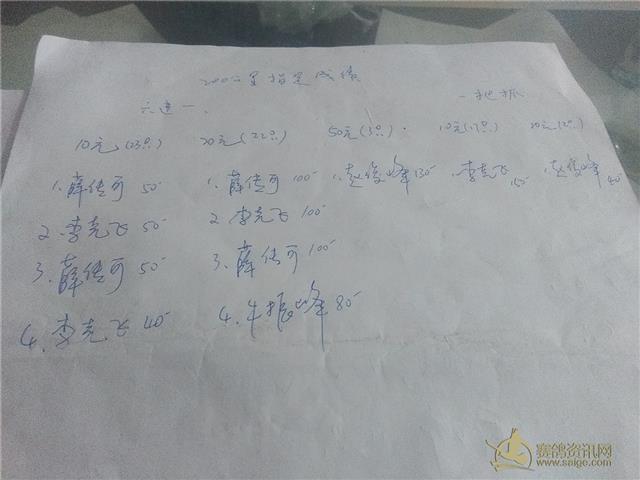 200公里指定成绩
六进一. 一把抓
10元(23只) 20元(22只) 50元(3只). 10元(17只) 20元(2只)
1.薛传可 50 1.薛传可 100 1.赵俊峰 130 1.李克飞 1.赵俊峰 40
2.李克飞 50 2.李克飞 100
3、薛传可 50 3、薛传可 100
4.李克飞 40 4.牛振峰 80
赛鸽资讯网
www.saige.com